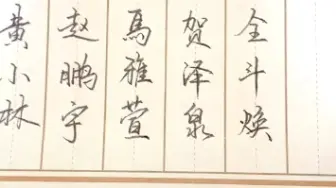 全斗焕
贺泽泉
馬雅萱
赵鹏宇
黄小林